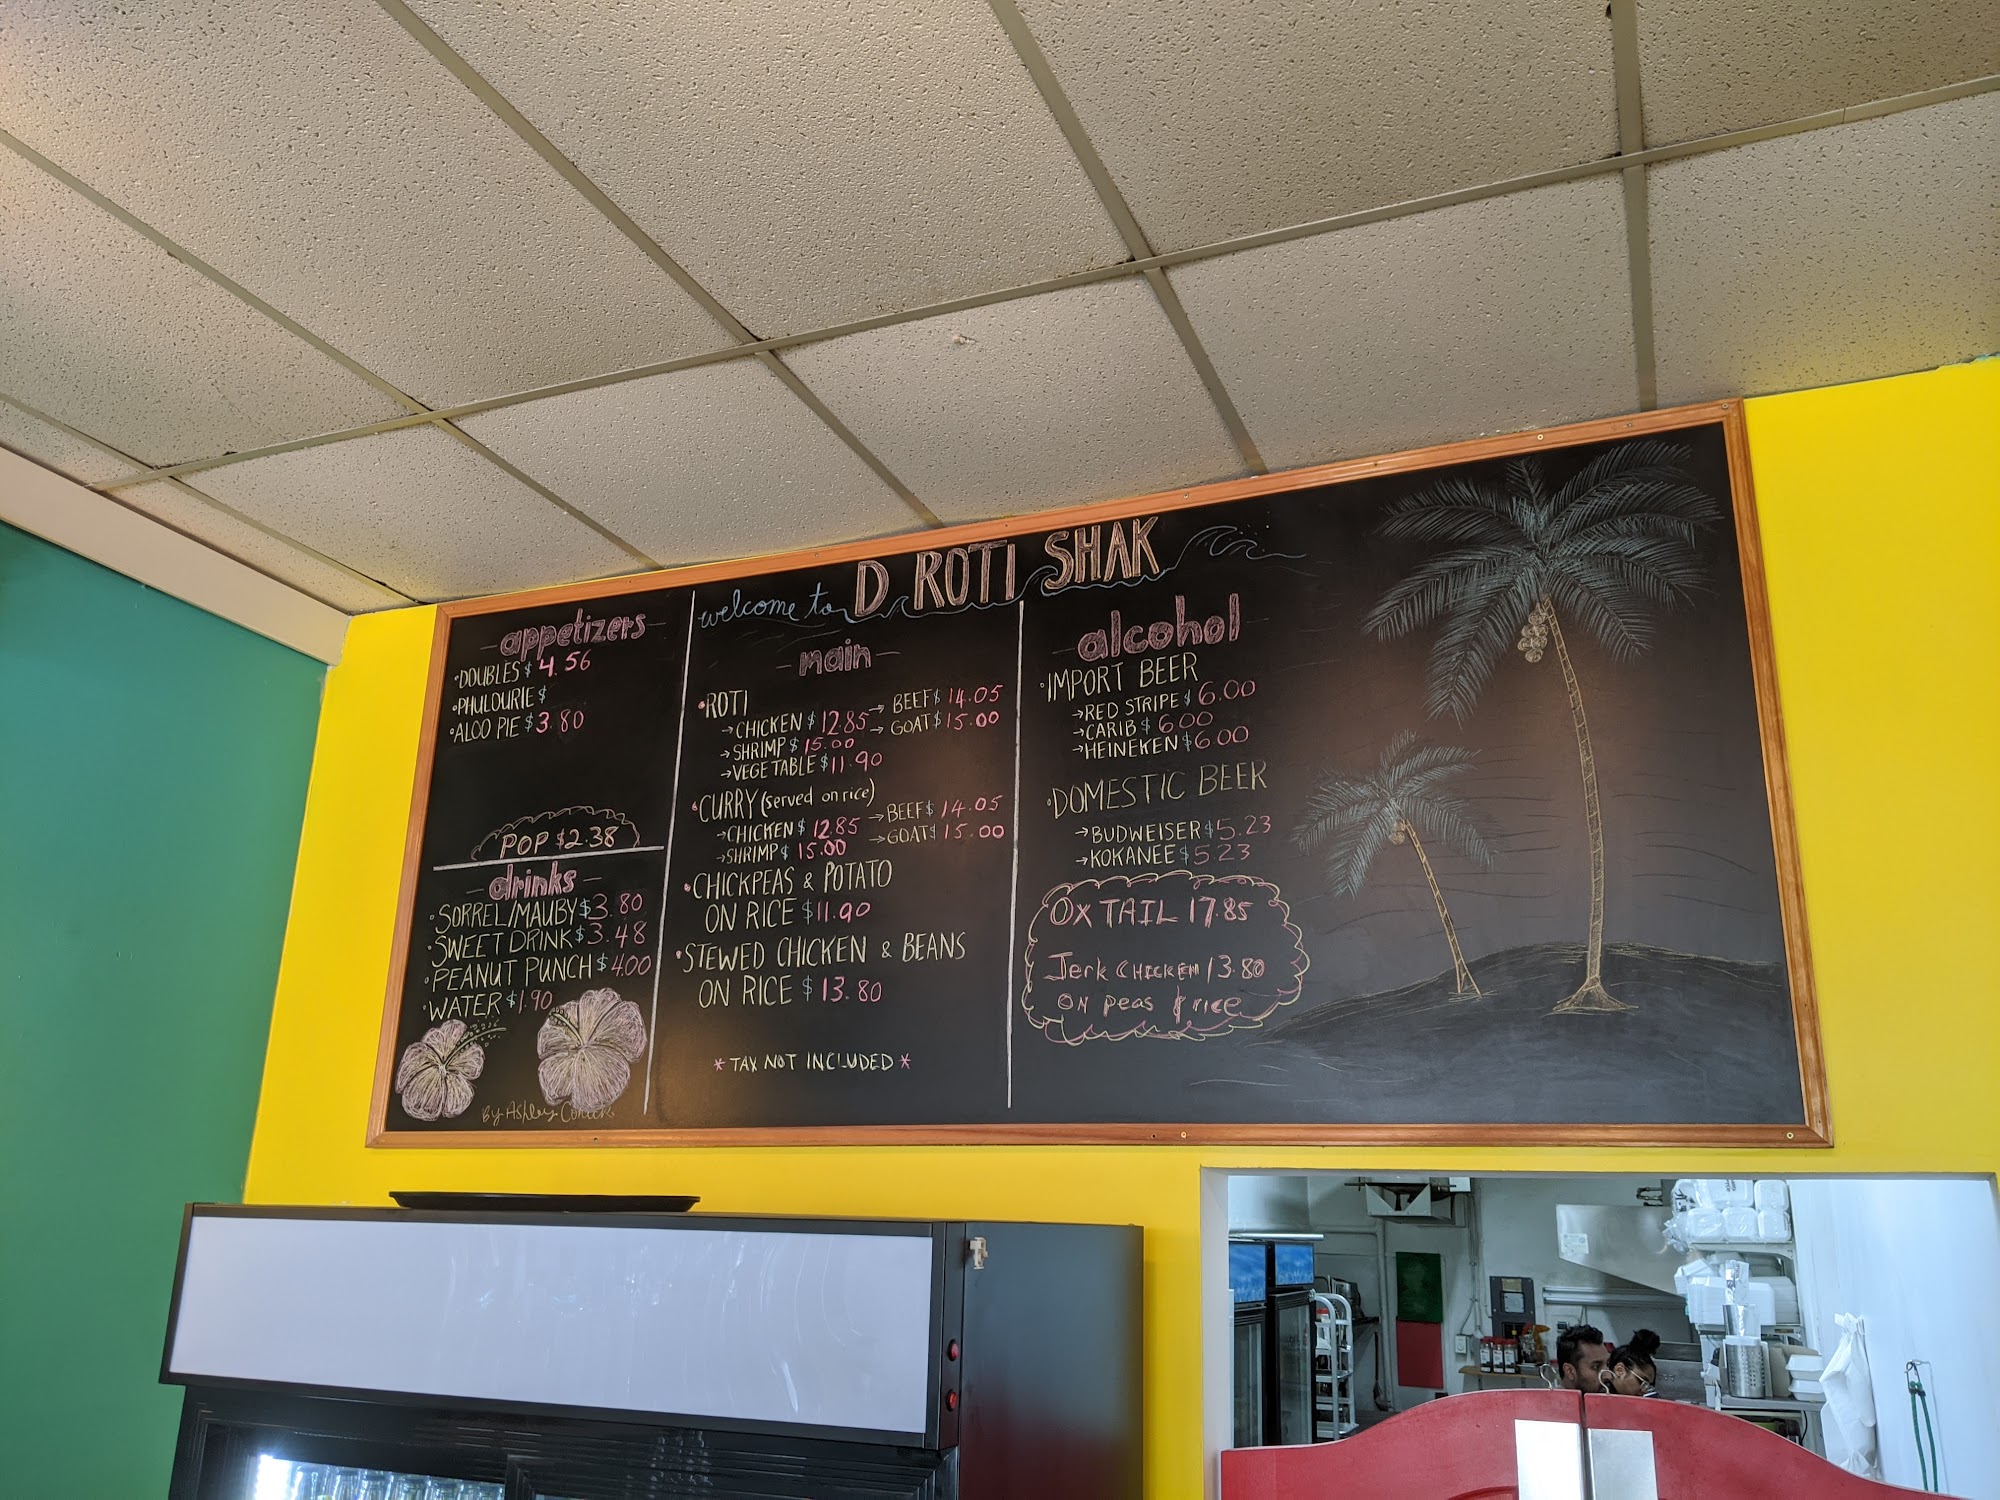 welcome to D ROTI SHAK
- appetizers -
• DOUBLES $ 4.56
• PHULOURIE $
• ALOO PIE $ 3.80
POP $2.38
- drinks -
• SORREL/MAUBY $3.80
• SWEET DRINK $3.48
• PEANUT PUNCH $4.00
• WATER $1.90
By Ashley
- main -
• ROTI
→ CHICKEN $ 12.85 → BEEF $ 14.05
→ SHRIMP $ 15.00 → GOAT $ 15.00
→ VEGETABLE $ 11.90
• CURRY (served on rice)
→ CHICKEN $ 12.85 → BEEF $ 14.05
→ SHRIMP $ 15.00 → GOAT $ 15.00
• CHICKPEAS & POTATO
ON RICE $11.90
• STEWED CHICKEN & BEANS
ON RICE $ 13.80
* TAX NOT INCLUDED *
- alcohol -
• IMPORT BEER
→ RED STRIPE $ 6.00
→ CARIB $ 6.00
→ HEINEKEN $6.00
• DOMESTIC BEER
→ BUDWEISER $5.23
→ KOKANEE $5.23
OX TAIL 17.85
Jerk CHICKEN 13.80
ON peas & rice